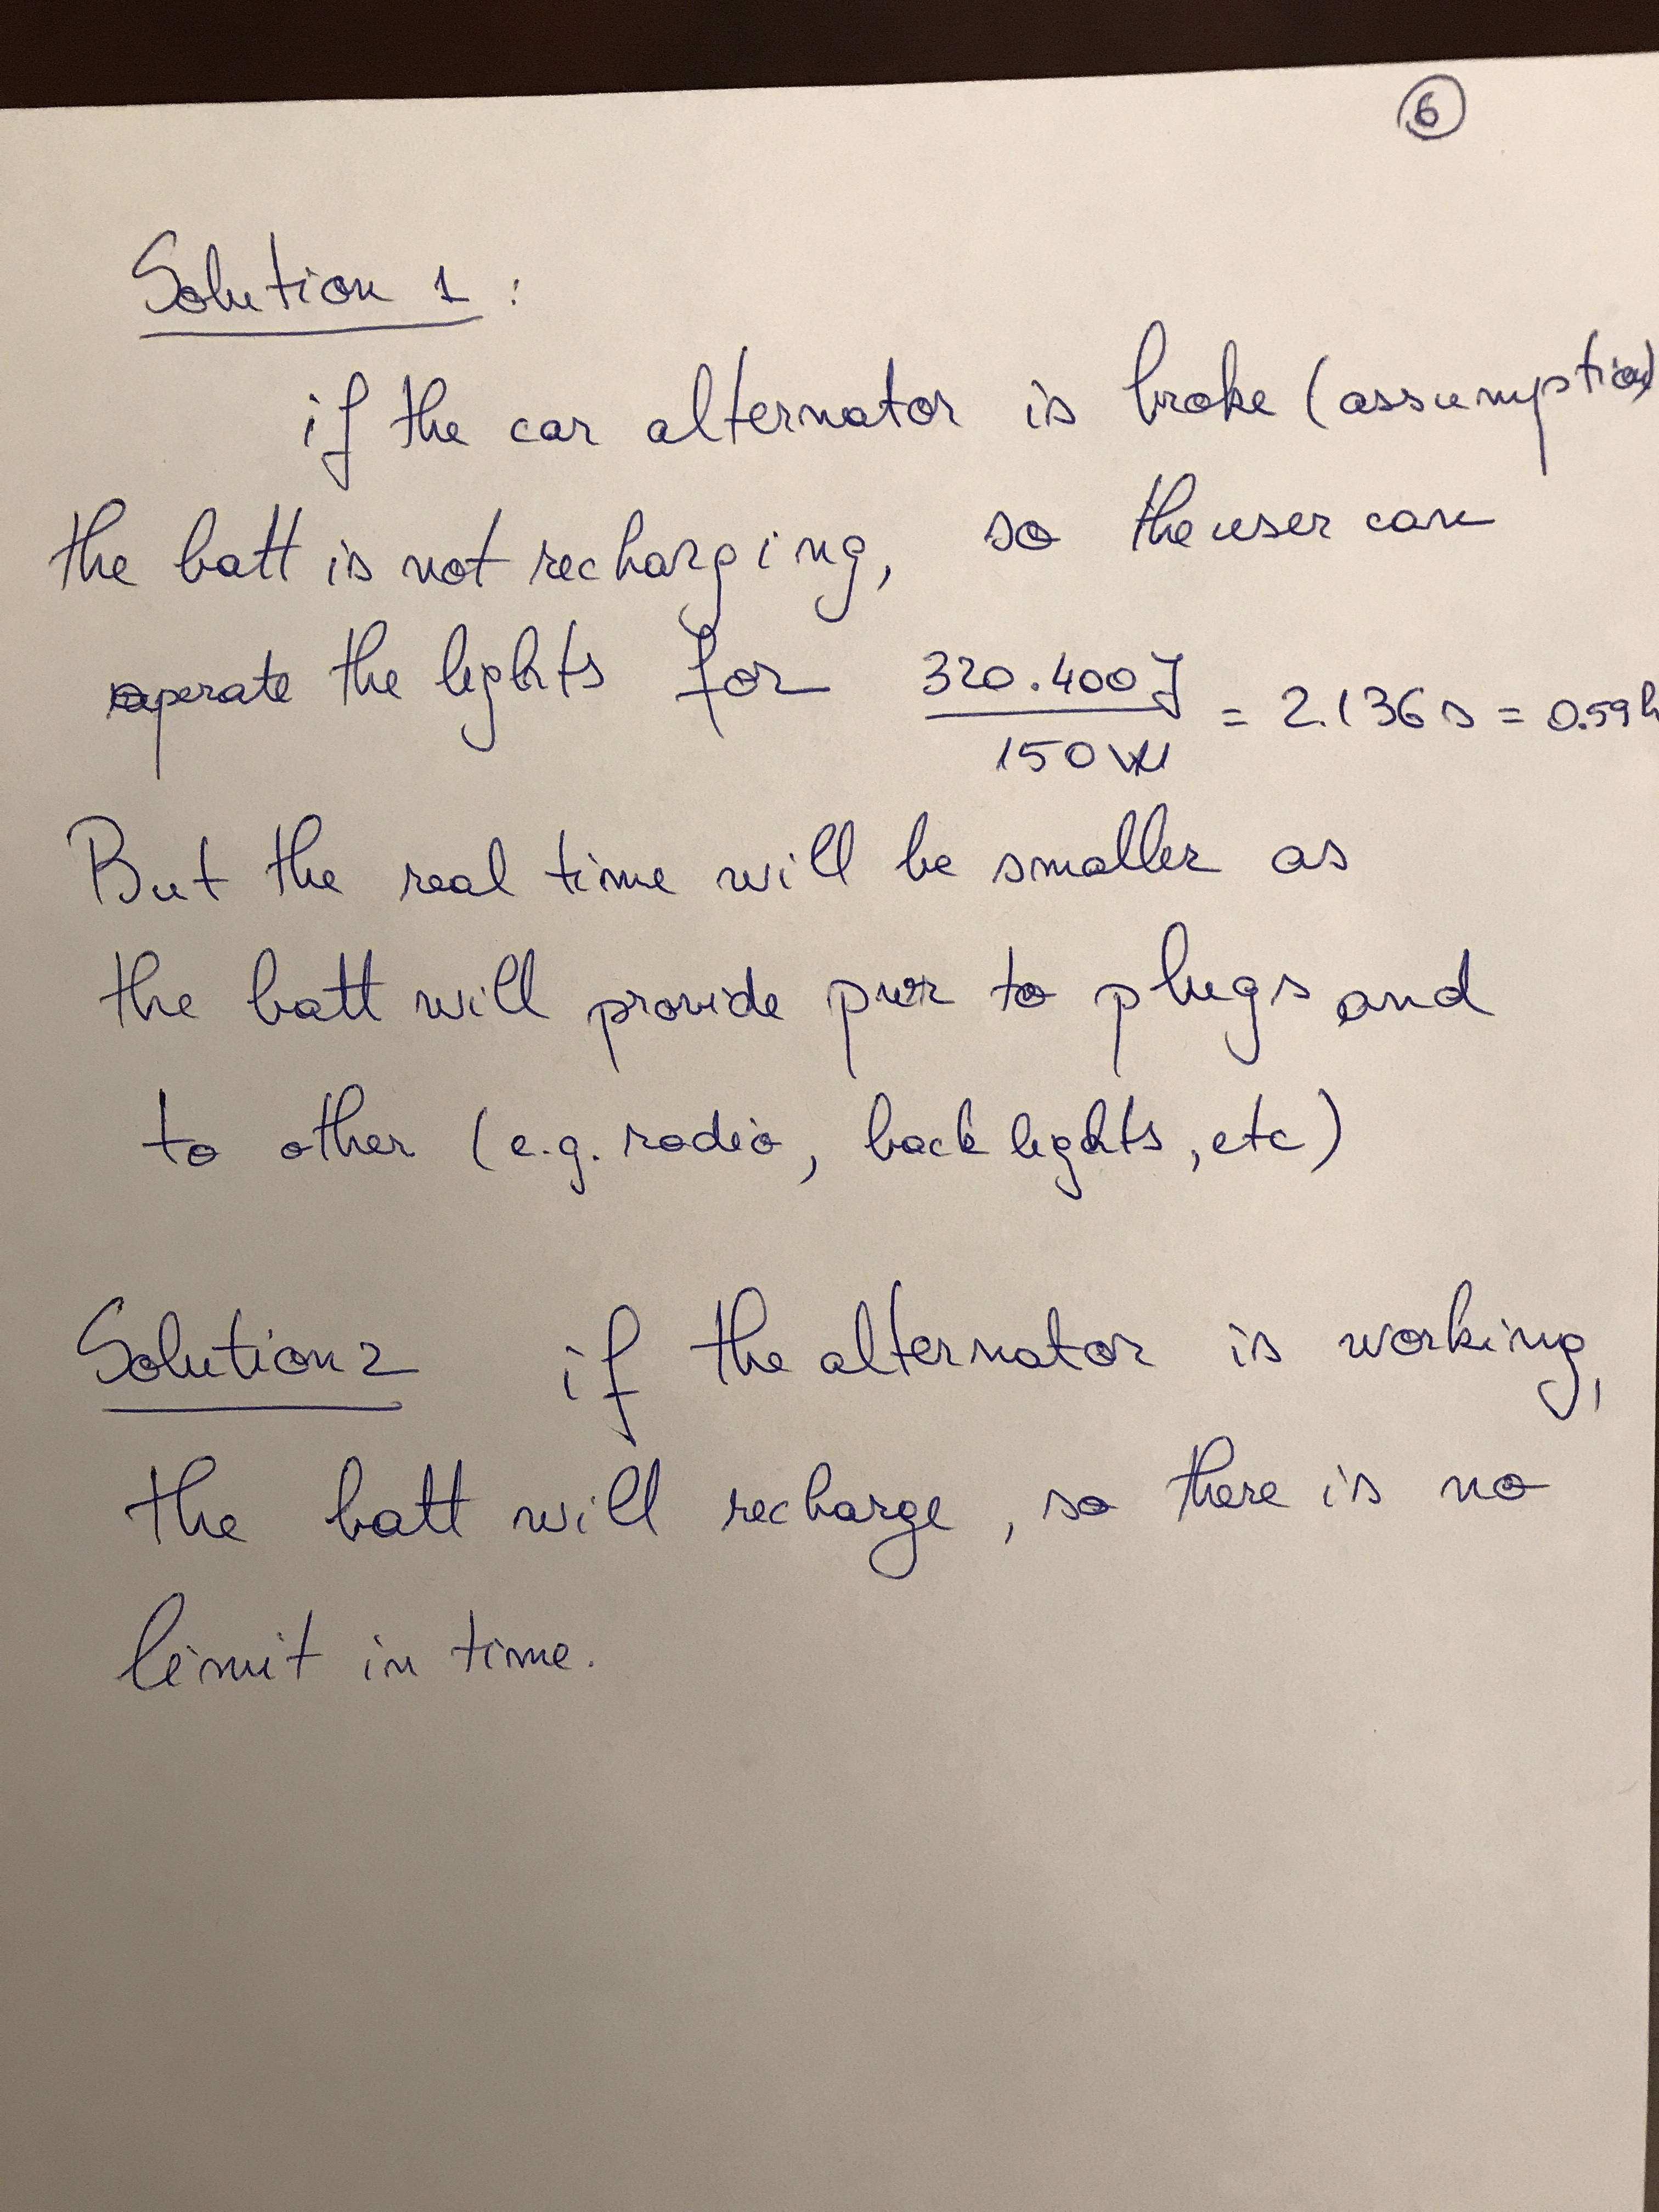 6
Solution 1 :
if the car alternator is broke (assumption)
the batt is not recharging, so the user can
operate the lights for 320.400 J / 150 W = 2.136 s = 0.59 h
But the real time will be smaller as
the batt will provide pwr to plugs and
to other (e.g. radio, back lights, etc)
Solution 2 if the alternator is working,
the batt will recharge, so there is no
limit in time.